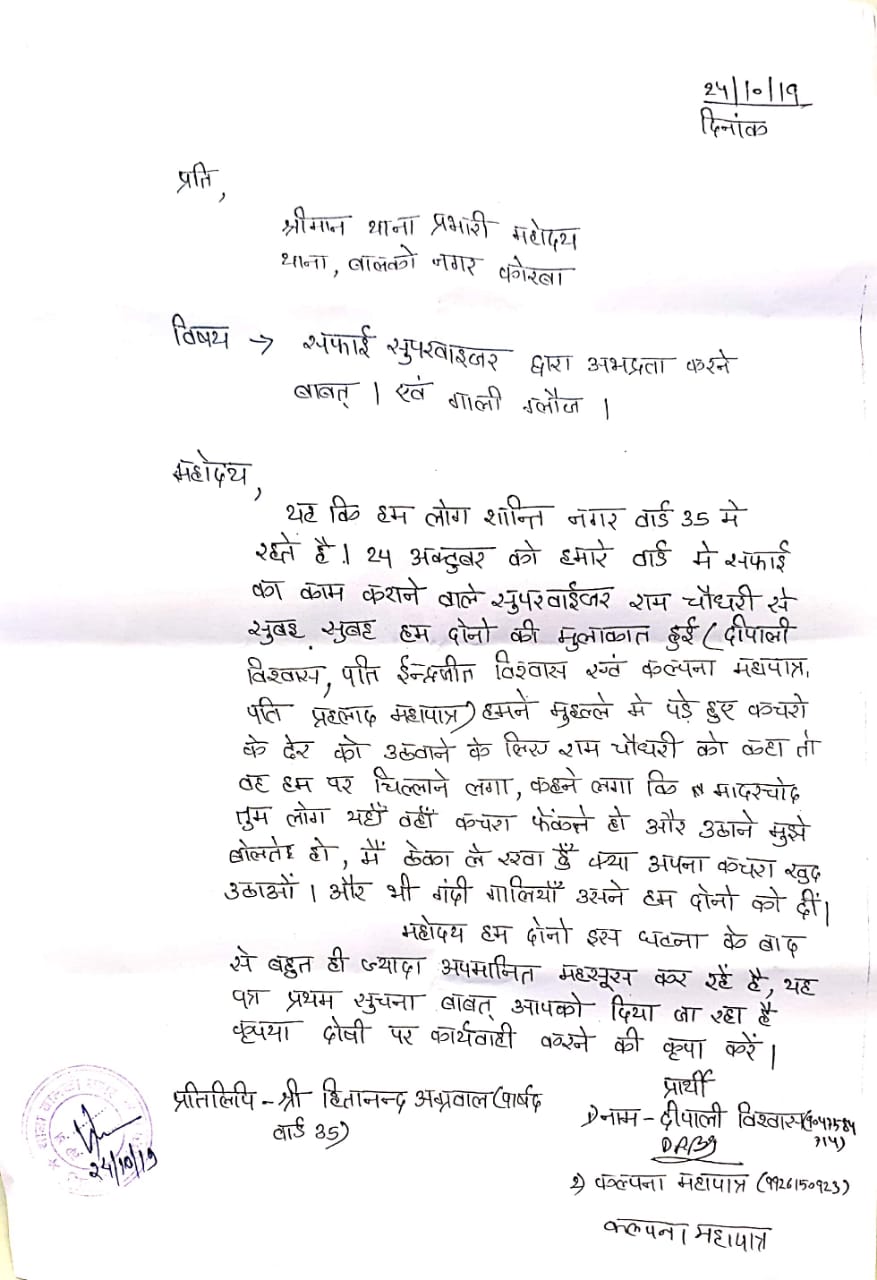 24/10/19
दिनांक
प्रति,
श्रीमान थाना प्रभारी महोदय
थाना, बालको नगर कोरबा
विषय → सफाई सुपरवाइजर द्वारा अभद्रता करने
बाबत् । एवं गाली ग्लौज ।
महोदय,
यह कि हम लोग शान्ति नगर वार्ड 35 मे
रहते है । 24 अक्टुबर को हमारे वार्ड मे सफाई
का काम कराने वाले सुपरवाईजर राम चौधरी से
सुबह सुबह हम दोनो की मुलाकात हुई (दीपाली
विश्वास, पति ईन्द्रजीत विश्वास एवं कल्पना महापात्र,
पति प्रहलाद महापात्र) हमनें मुहल्ले मे पड़े हुए कचरो
के ढेर को उठवाने के लिए राम चौधरी को कहा तो
वह हम पर चिल्लाने लगा, कहने लगा कि मादरचोद
तुम लोग यहाँ वहाँ कचरा फेंकते हो और उठाने मुझे
बोलते हो, मैं ठेका ले रखा हूँ क्या अपना कचरा खुद
उठाओं । और भी गंदी गालियाँ उसने हम दोनो को दीं।
महोदय हम दोनो इस घटना के बाद
से बहुत ही ज्यादा अपमानित महसूस कर रहें है, यह
पत्र प्रथम सुचना बाबत् आपको दिया जा रहा है
कृपया दोषी पर कार्यवाही करने की कृपा करें ।
प्रतिलिपि - श्री हितानन्द अग्रवाल (पार्षद
वार्ड 35)
प्रार्थी
1) नाम - दीपाली विश्वास
2) कल्पना महापात्र (9926150923)
कल्पना महापात्र
24/10/19